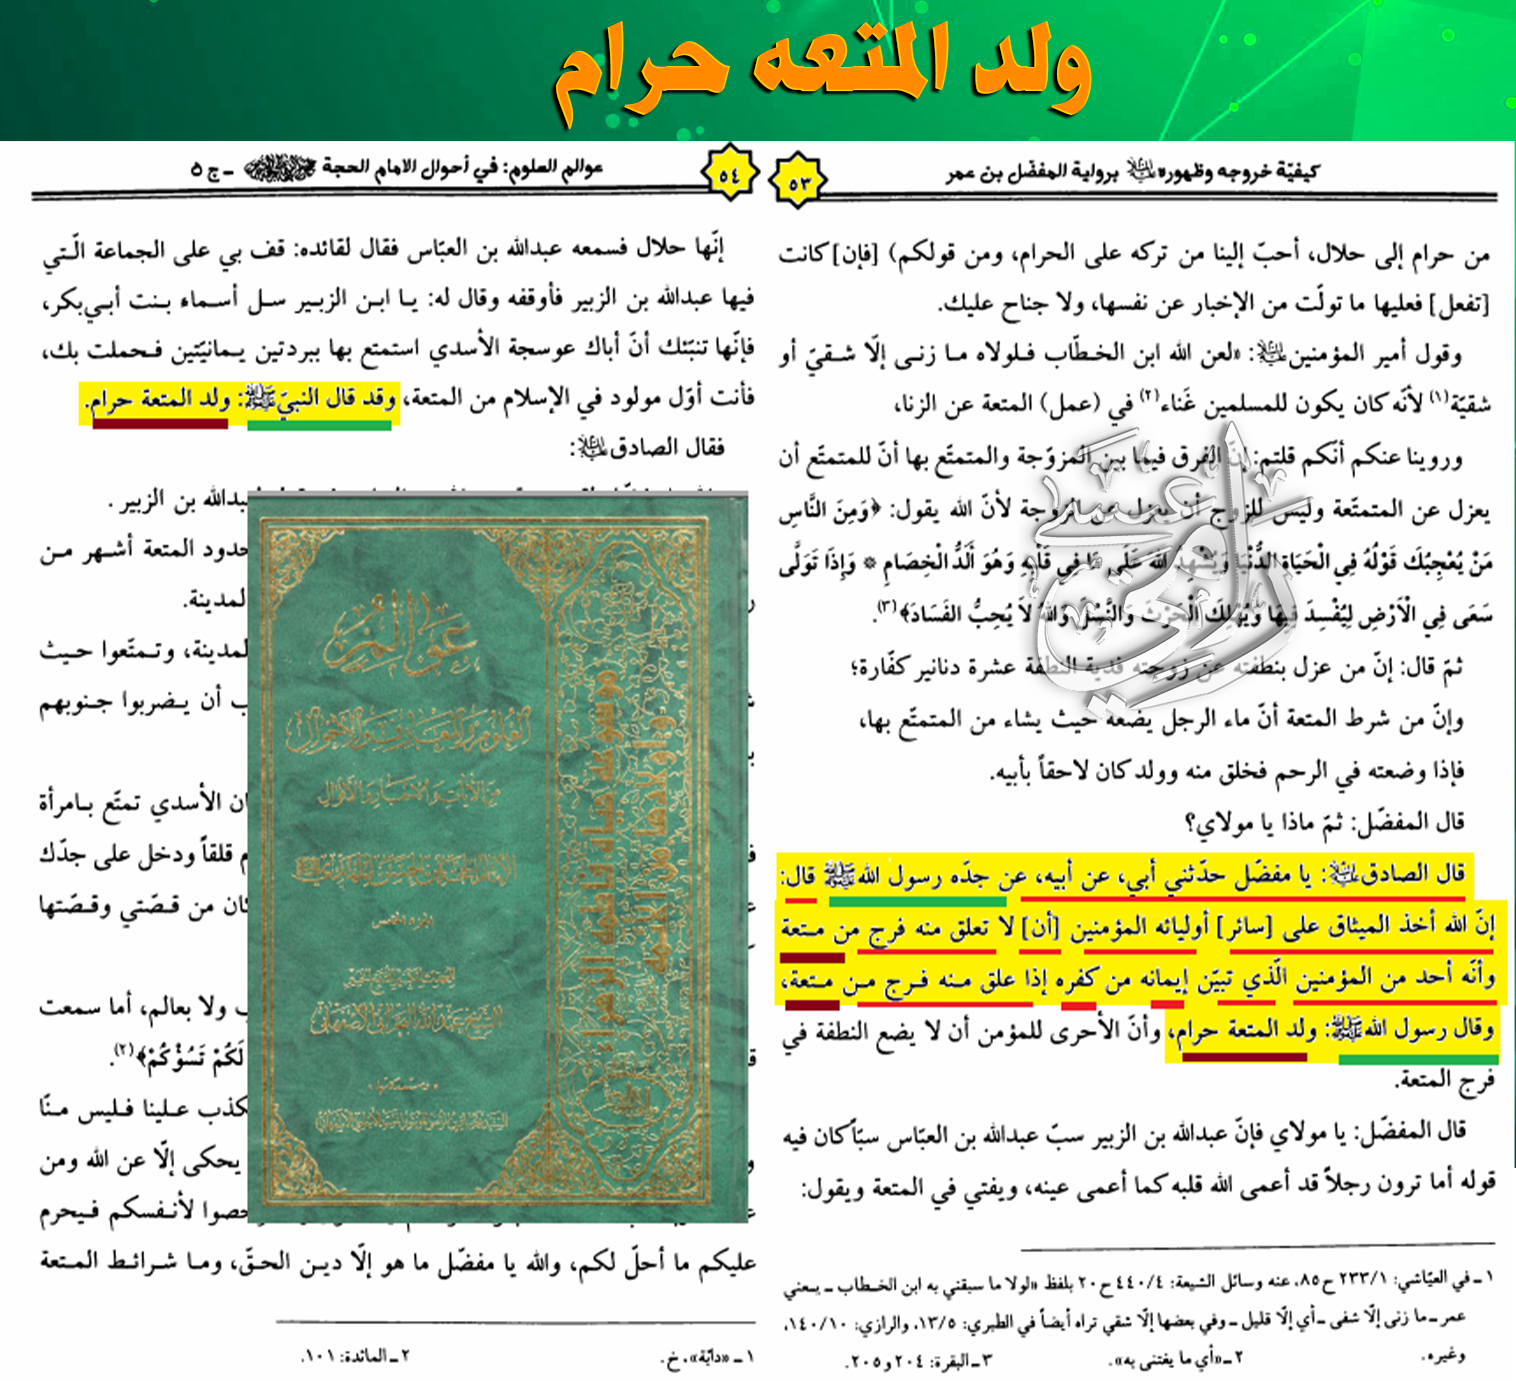 ولد المتعه حرام
كيفيّة خروجه وظهوره برواية المفضّل بن عمر
٥٣
من حرام إلى حلال، أحبّ إلينا من تركه على الحرام، ومن قولكم) [فإن] كانت
[تفعل] فعليها ما تولّت من الإخبار عن نفسها، ولا جناح عليك.
وقول أمير المؤمنين: «لعن الله ابن الخطّاب فلولاه ما زنى إلّا شقيّ أو
شقيّة(١) لأنّه كان يكون للمسلمين غَناء(٢) في (عمل) المتعة عن الزنا،
وروينا عنكم أنّكم قلتم: إنّ الفرق فيما بين المزوّجة والمتمتّع بها أنّ للمتمتّع أن
يعزل عن المتمتّعة وليس للزوج أن يعزل عن الزوجة لأنّ الله يقول: ﴿وَمِنَ النَّاسِ
مَنْ يُعْجِبُكَ قَوْلُهُ فِي الْحَيَاةِ الدُّنْيَا وَيُشْهِدُ اللهَ عَلَى مَا فِي قَلْبِهِ وَهُوَ أَلَدُّ الْخِصَامِ * وَإِذَا تَوَلَّى
سَعَى فِي الْأَرْضِ لِيُفْسِدَ فِيهَا وَيُهْلِكَ الْحَرْثَ وَالنَّسْلَ وَاللهُ لاَ يُحِبُّ الفَسَادَ﴾(٣).
ثمّ قال: إنّ من عزل بنطفته عن زوجته فدية النطفة عشرة دنانير كفّارة؛
وإنّ من شرط المتعة أنّ ماء الرجل يضعه حيث يشاء من المتمتّع بها،
فإذا وضعته في الرحم فخلق منه وولد كان لاحقاً بأبيه.
قال المفضّل: ثمّ ماذا يا مولاي؟
قال الصادق: يا مفضّل حدّثني أبي، عن أبيه، عن جدّه رسول الله ﷺ قال:
إنّ الله أخذ الميثاق على [سائر] أوليائه المؤمنين [أن] لا تعلق منه فرج من متعة
وأنّه أحد من المؤمنين الّذي تبيّن إيمانه من كفره إذا علق منه فرج من متعة،
وقال رسول الله ﷺ: ولد المتعة حرام، وأنّ الأحرى للمؤمن أن لا يضع النطفة في
فرج المتعة.
قال المفضّل: يا مولاي فإنّ عبدالله بن الزبير سبّ عبدالله بن العبّاس سبّاً كان فيه
قوله أما ترون رجلاً قد أعمى الله قلبه كما أعمى عينه، ويفتي في المتعة ويقول:
١ ـ في العيّاشي: ٢٣٣/١ ح٨٥، عنه وسائل الشيعة: ٤٤٠/٤ ح٢٠ بلفظ «لولا ما سبقني به ابن الخطاب ـ يعني
عمر ـ ما زنى إلّا شفى ـ أي إلّا قليل ـ وفي بعضها إلّا شقي تراه أيضاً في الطبري: ١٣/٥، والرازي: ١٤٠/١٠،
وغيره. ٢ ـ «أي ما يغتنى به». ٣ ـ البقرة: ٢٠٤ و٢٠٥.
٥٤
عوالم العلوم: في أحوال الامام الحجة ـ ج ٥
إنّها حلال فسمعه عبدالله بن العبّاس فقال لقائده: قف بي على الجماعة الّتي
فيها عبدالله بن الزبير فأوقفه وقال له: يا ابن الزبير سل أسماء بنت أبي‌بكر،
فإنّها تنبّئك أنّ أباك عوسجة الأسدي استمتع بها ببردتين يمانيّتين فحملت بك،
فأنت أوّل مولود في الإسلام من المتعة، وقد قال النبيّ ﷺ: ولد المتعة حرام.
فقال الصادق:
عبدالله بن الزبير.
حدود المتعة أشهر من
المدينة.
المدينة، وتمتّعوا حيث
أن يضربوا جنوبهم
الأسدي تمتّع بامرأة
قلقاً ودخل على جدّك
كان من قصّتي وقصّتها
ولا بعالم، أما سمعت
لَكُمْ تَسُؤْكُمْ﴾(٢).
كذب علينا فليس منّا
يحكى إلّا عن الله ومن
لأنفسكم فيحرم
عليكم ما أحلّ لكم، والله يا مفضّل ما هو إلّا دين الحقّ، وما شرائط المتعة
١ ـ «دابّة»، خ. ٢ ـ المائدة: ١٠١.
عوالم
العلوم والمعارف والأحوال
من الآيات والأخبار والأقوال
الشيخ عبدالله البحراني الاصفهاني